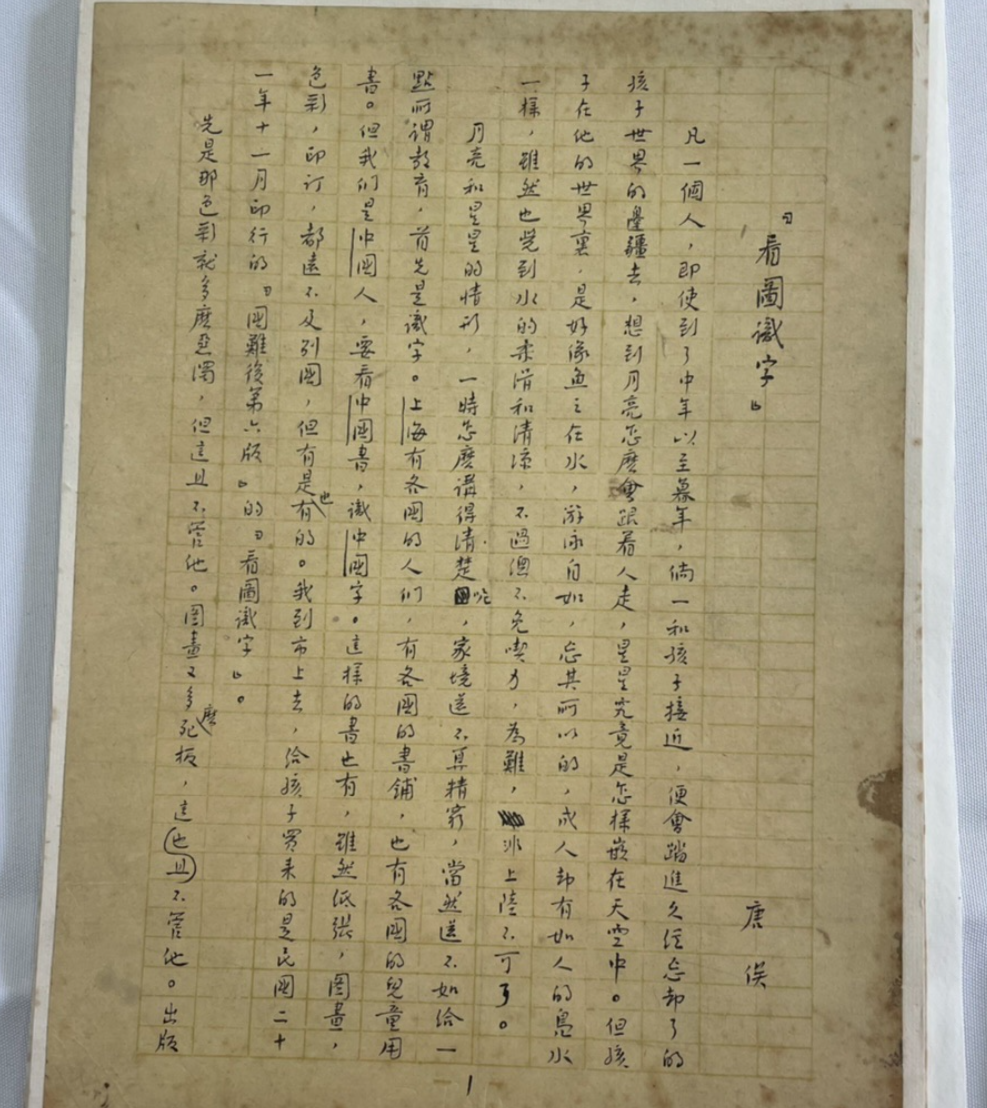 『看圖識字』
唐俟
凡一個人，即使到了中年以至暮年，倘一和孩子接近，便會踏進久經忘却了的
孩子世界的邊疆去，想到月亮怎麽會跟着人走，星星究竟是怎樣嵌在天空中。但孩
子在他的世界裏，是好像魚之在水，游泳自如，忘其所以的，成人却有如人的鳧水
一樣，雖然也覺到水的柔滑和清涼，不過總不免喫力，為難，非上陸不可了。
月亮和星星的情形，一時怎麽講得清楚呢，家境還不算精窮，當然還不如給一
點所謂教育，首先是識字。上海有各國的人們，有各國的書鋪，也有各國的兒童用
書。但我們是中國人，要看中國書，識中國字。這樣的書也有，雖然紙張，圖畫，
色彩，印訂，都遠不及别國，但有是也有的。我到市上去，給孩子買來的是民國二十
一年十一月印行的『國難後第六版』的『看圖識字』。
先是那色彩就多麽惡濁，但這且不管他。圖畫又多麽死板，這也且不管他。出版
1